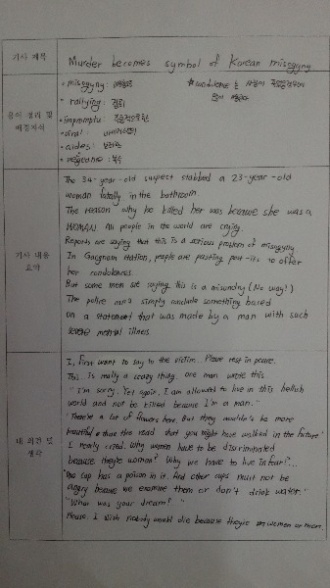 기사 제목
Murder becomes symbol of Korean misogyny
용어 정리 및
배경지식
• misogyny :
• rallying :
• impromptu :
• rival :
• aides :
• vengeance : 복수
기사 내용
요약
The 34-year-old suspect stabbed a 23-year-old
woman fatally in the bathroom.
The reason why he killed her was because she was a
WOMAN. All people in the world are crying.
Reports are saying that this is a serious problem of misogyny
In Gangnam station, people are posting post-its to offer
her condolences.
But some men are saying this is a misandry (No way!)
The police can't simply conclude something based
on a statement that was made by a man with such
severe mental illness
내 의견 및
생각
I, first want to say to the victim. Please rest in peace.
This is really a crazy thing. one man wrote this
"I'm sorry. Yet again, I am allowed to live in this hellish
world and not be killed because I'm a man."
"There're a lot of flowers here. But they wouldn't be more
beautiful than this road that you might have walked in the future"
I really cried. Why women have to be discriminated
because they're woman? Why we have to live in fear?...
"One cup has a poison in it. And other cups must not be
angry because we examine them or don't drink water."
"What was your dream?"
Please, I wish nobody would die because they're women or men.